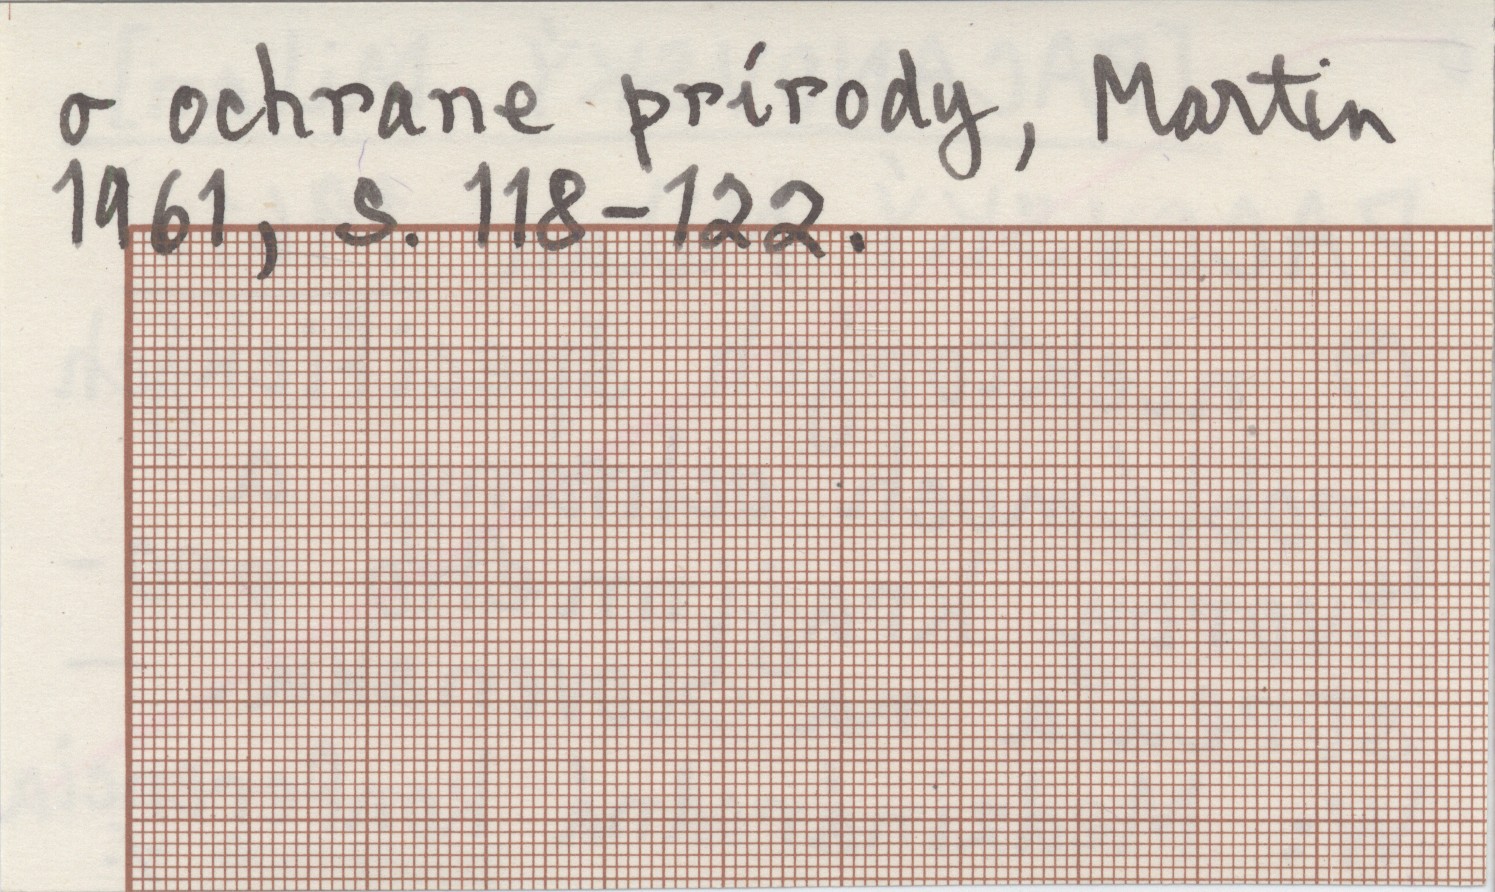 o ochrane prírody, Martin
1961, s. 118-122.